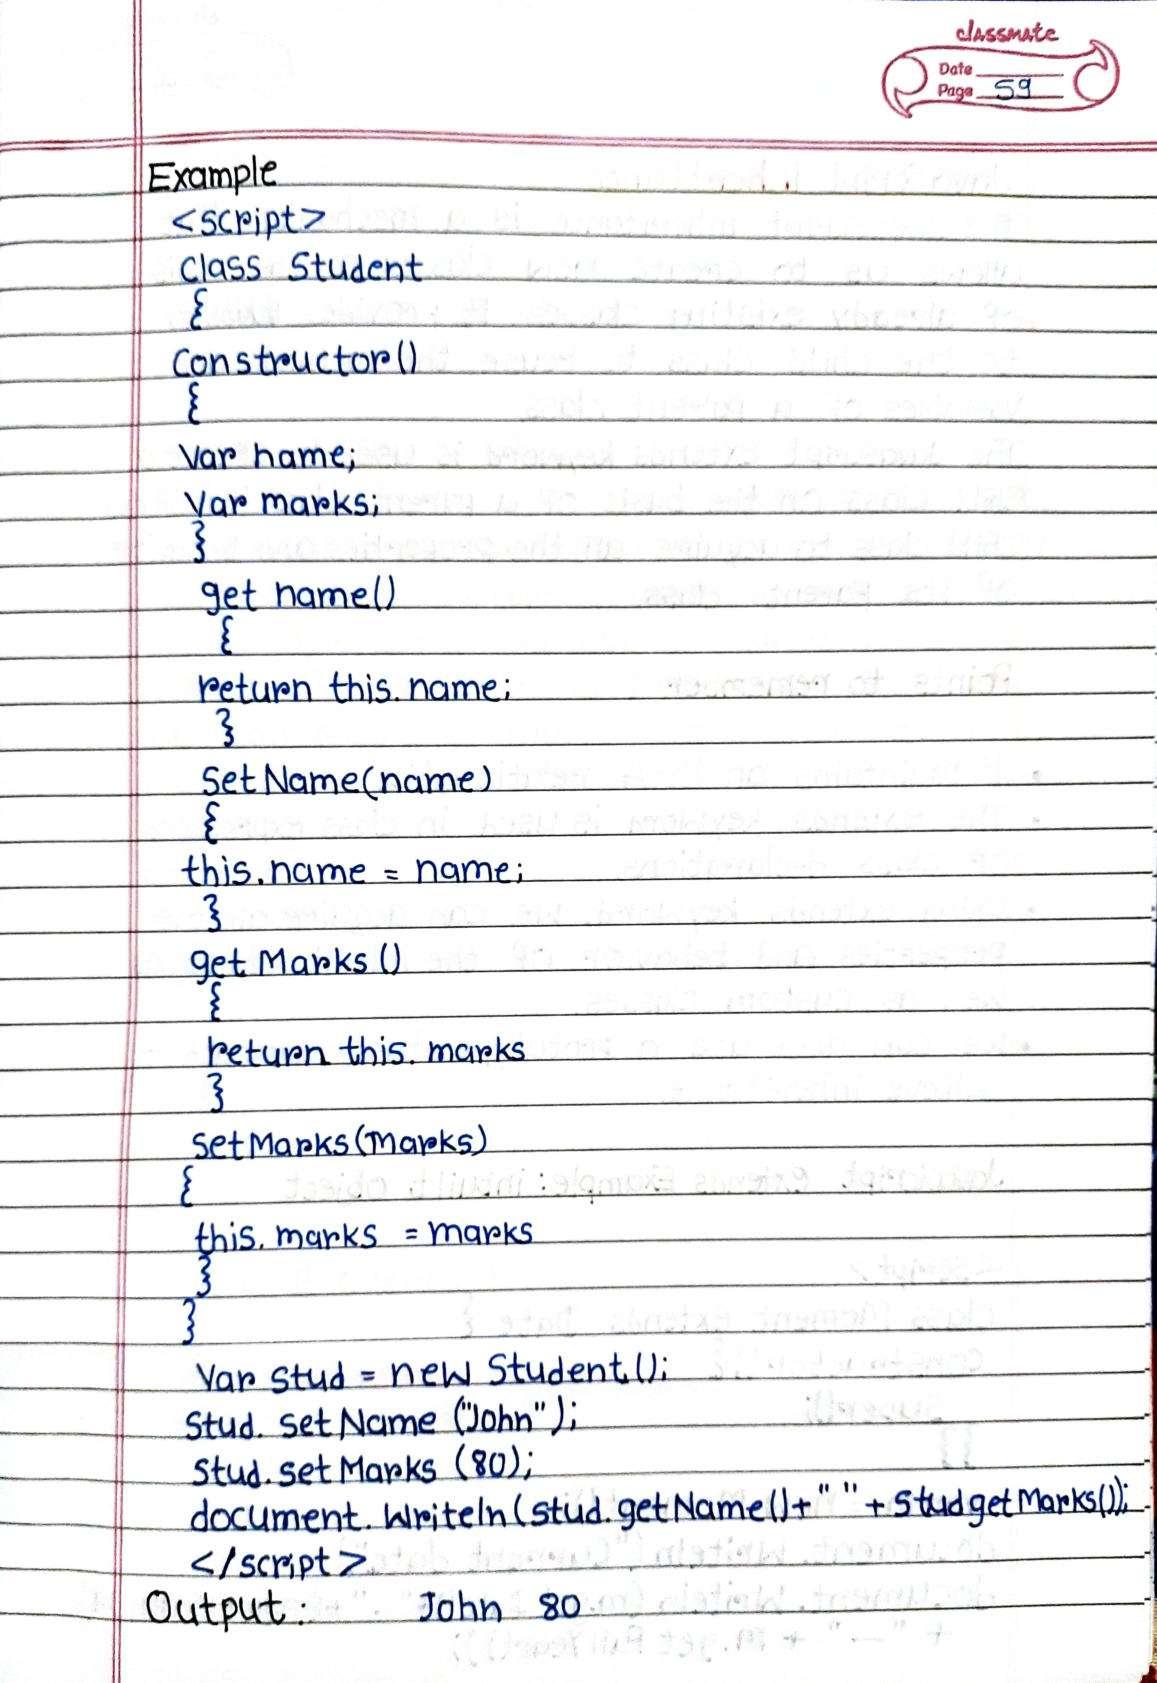 classmate
Date
Page 59
Example
<script>
class Student
{
constructor()
{
var name;
var marks;
}
get name()
{
return this.name;
}
setName(name)
{
this.name = name;
}
getMarks()
{
return this.marks
}
setMarks(marks)
{
this.marks = marks
}
}
Var stud = new Student();
Stud. setName ("John");
Stud.setMarks (80);
document. writeln(stud.getName()+" "+studgetMarks());
</script>
Output: John 80